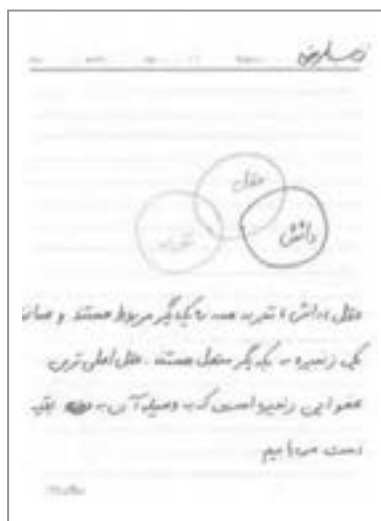 عقل
دانش
تجربه
عقل، دانش، تجربه همه به یکدیگر مربوط هستند و همانند
یک زنجیره به یکدیگر متصل هستند. عقل اصلی ترین
عضو این زنجیره است که به وسیله آن به بقیه
دست می یابیم